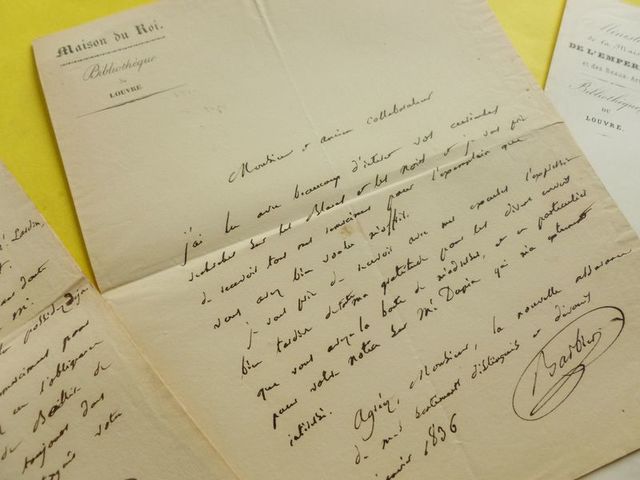 Maison du Roi.
Bibliothèque
du
LOUVRE
Monsieur et ancien collaborateur
j'ai lu avec beaucoup d'intérêt vos curieuses
recherches sur les Blancs et les Noirs et je vous prie
de recevoir tous mes remerciemens pour l'exemplaire que
vous avez bien voulu m'offrir.
je vous prie de recevoir avec mes excuses l'expression
bien tardive de toute ma gratitude pour les divers envois
que vous avez la bonté de m'adresser, et en particulier
pour votre notice sur Mr Dupin qui m'a vivement
intéressé.
Agréez, Monsieur, la nouvelle assurance
de mes sentiments distingués et dévoués
Barbier
janvier 1836
Ministè
de la Mai
DE L'EMPER
et des Beaux-Ar
Bibliothèque
DU
LOUVRE.
Mr
pour
l'obligeance
de
toujours dans
votre